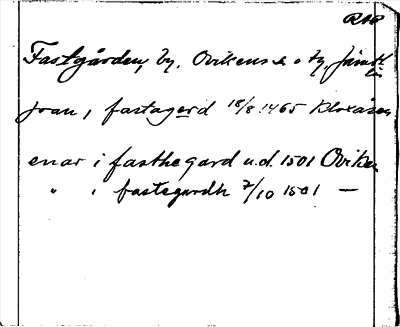 RAP
Fastgården, by, Ovikens s. o tg, Jämtl
län
joan, fastagerd 18/8 1465 Kloxåsen
enar i fasthegard u.d. 1501 Oviken
" i fastegardh 7/10 1501 —